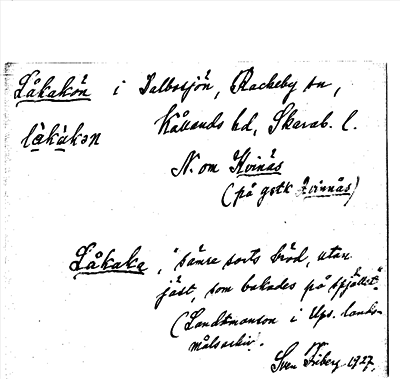 Låkakön i Dalbosjön, Rackeby sn,
låkàkən Kållands hd, Skarab. l.
N. om Hvinäs
(på gstk Kvinnäs)
Låkaka, "sämre sorts bröd, utan
jäst, som bakades på spjället".
(Landtmanson i Ups. lands-
målsarkiv.
Sven Friberg 1927.